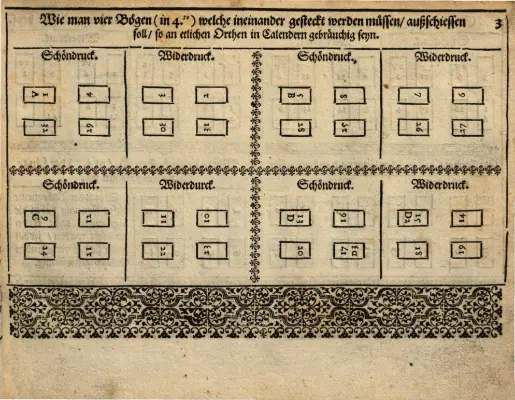 Wie man vier Bögen (in 4.to) welche ineinander gesteckt werden müssen/ außschiessen 3
soll/ so an etlichen Orthen in Calendern gebräuchig seyn.
Schöndruck. Widerdruck. Schöndruck. Widerdruck.
1 A 4 3 2 5 B 8 7 6
32 29 30 31 28 25 26 27
Schöndruck. Widerdurck. Schöndruck. Widerdruck.
9 C 12 11 10 13 D 16 15 D2 14
24 21 22 23 20 17 D3 18 19